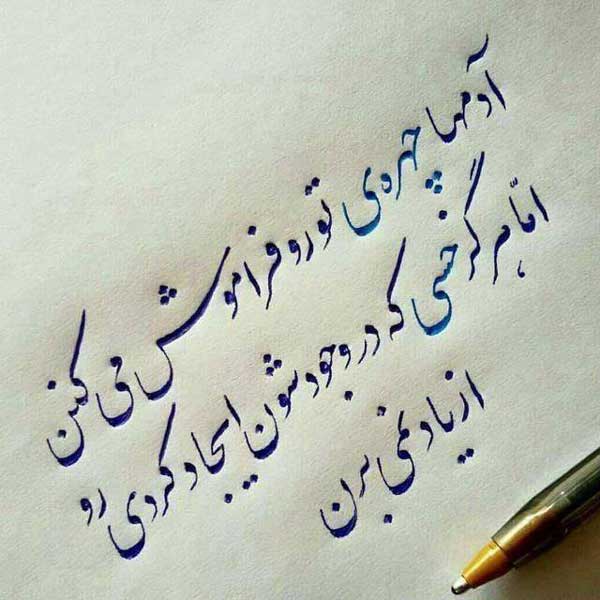 آدمها چهره‌ی تو رو فراموش می کنن
امّا هرگز حسی که در وجودشون ایجاد کردی رو
از یاد نمی برن